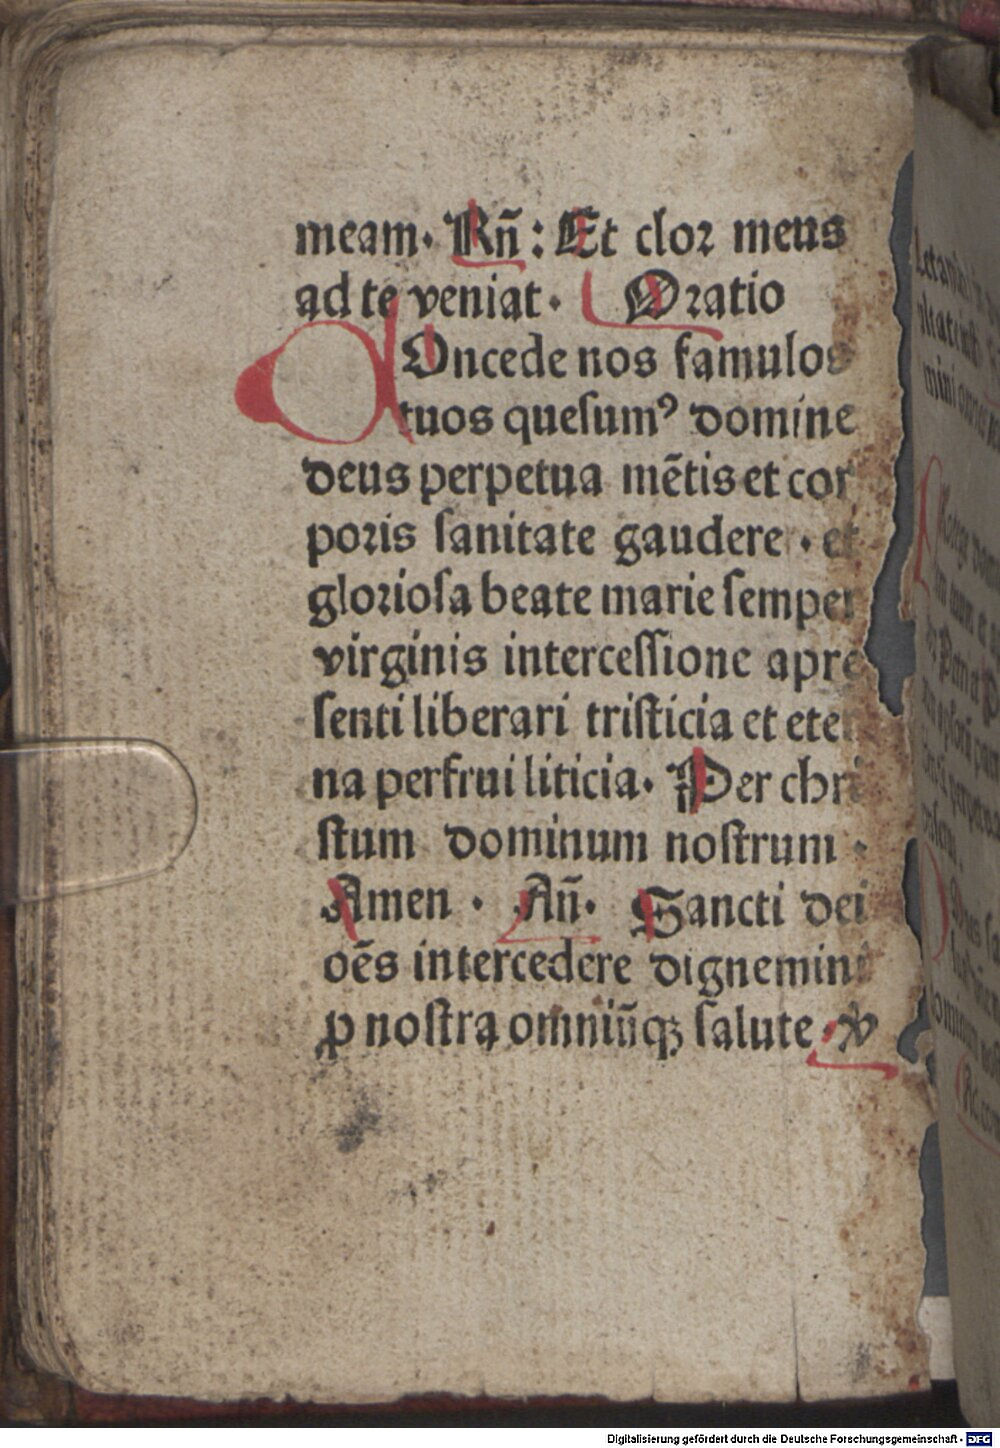 meam. Rñ: Et cloꝛ meus
ad te veniat. Oꝛatio
Oncede nos famulos
tuos queſumꝰ domine
deus perpetua mētis et coꝛ
poꝛis ſanitate gaudere . et
gloꝛioſa beate marie ſemper
virginis interceſſione a pre
ſenti liberari triſticia et eter
na perfrui liticia. Per chri
ſtum dominum noſtrum .
Amen . Añ. Sancti dei
oēs intercedere dignemini
ꝓ noſtra omniūqꝫ ſalute
Digitalisierung gefördert durch die Deutsche Forschungsgemeinschaft - DFG